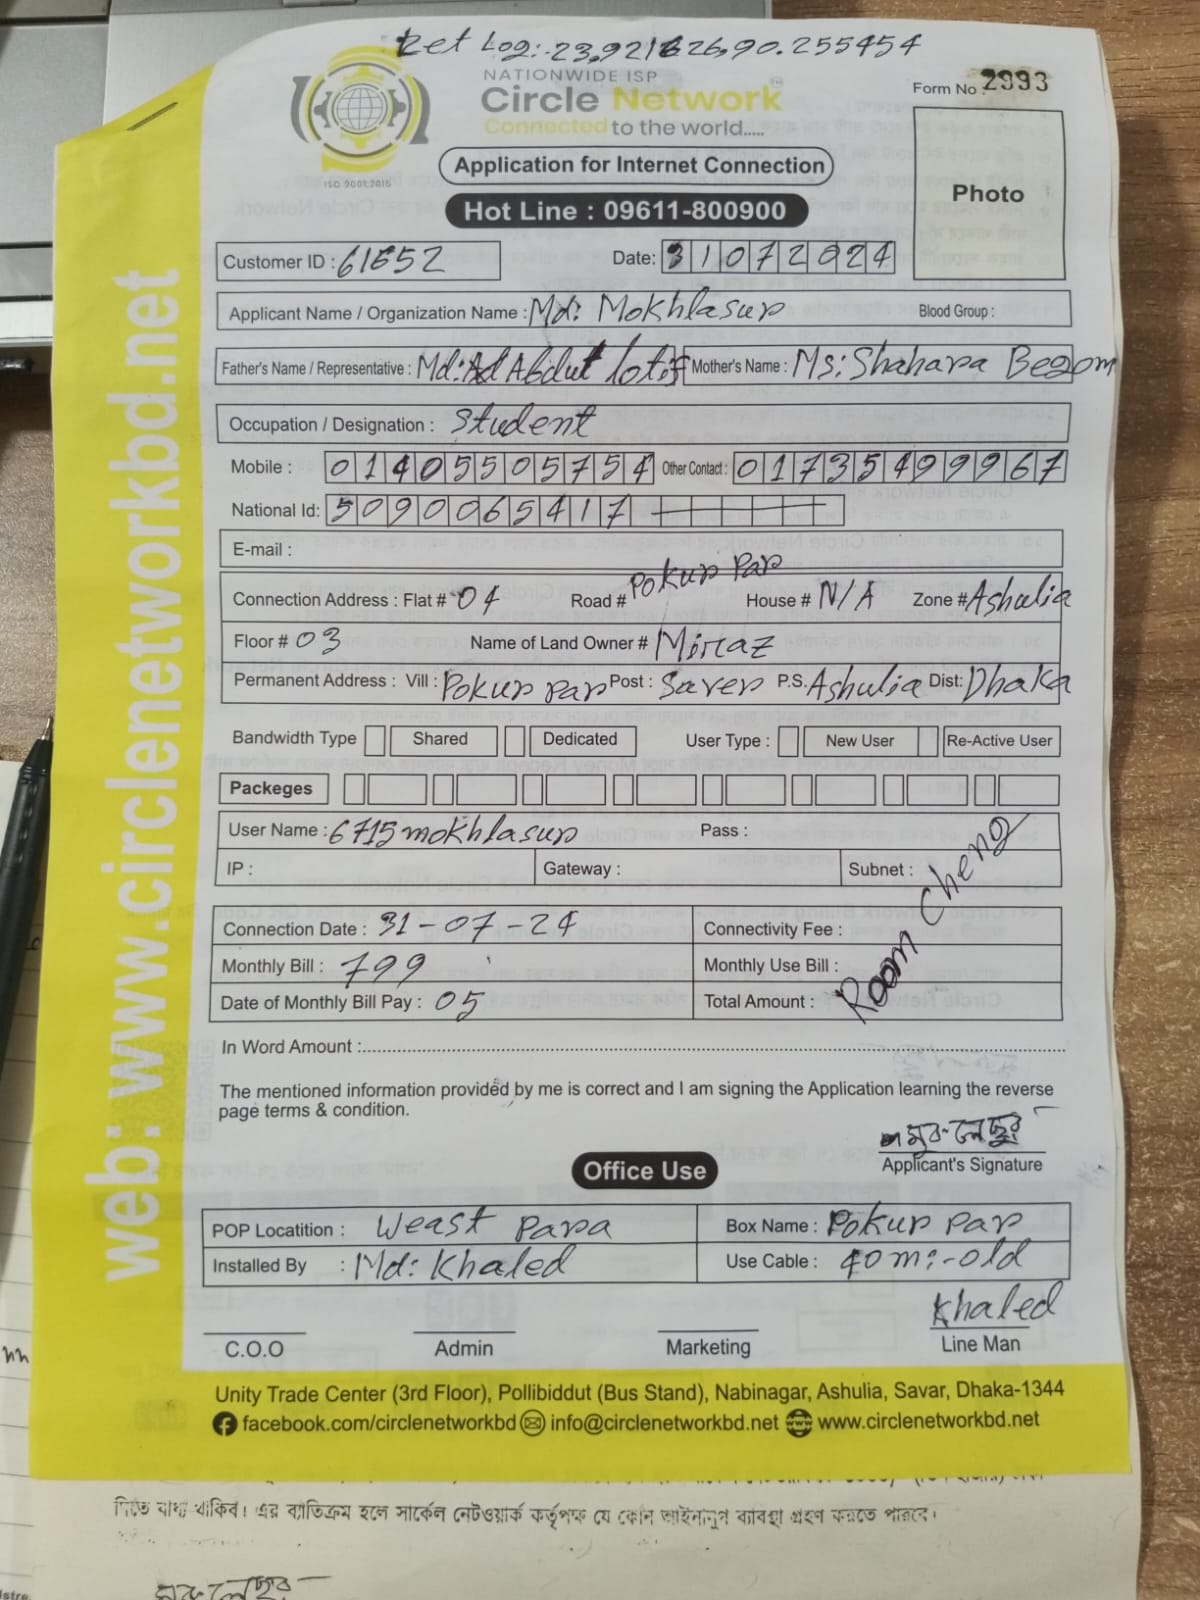 Let Log:-23,921626,90.255454
NATIONWIDE ISP
Circle Network
Connected to the world.....
ISO 9001:2015
Form No : 2993
Application for Internet Connection
Photo
Hot Line : 09611-800900
Customer ID : 61652 Date: 31072024
Applicant Name / Organization Name : Md: Mokhlasur Blood Group :
Father's Name / Representative : Md: Abdul Lotif Mother's Name : Ms: Shahara Begom
Occupation / Designation : Student
Mobile : 01405505754 Other Contact : 01735499967
National Id: 5090065417
E-mail :
Connection Address : Flat # 04 Road # Pokur Par House # N/A Zone # Ashulia
Floor # 03 Name of Land Owner # Miraz
Permanent Address : Vill : Pokur par Post : Saver P.S. Ashulia Dist: Dhaka
Bandwidth Type Shared Dedicated User Type : New User Re-Active User
Packeges
User Name : 6715mokhlasur Pass :
IP : Gateway : Subnet :
Room Cheng
Connection Date : 31-07-24 Connectivity Fee :
Monthly Bill : 799 Monthly Use Bill :
Date of Monthly Bill Pay : 05 Total Amount :
In Word Amount :
The mentioned information provided by me is correct and I am signing the Application learning the reverse
page terms & condition.
Applicant's Signature
Office Use
POP Locatition : Weast Para Box Name : Pokur par
Installed By : Md: Khaled Use Cable : 40m:-old
Khaled
C.O.O Admin Marketing Line Man
Unity Trade Center (3rd Floor), Pollibiddut (Bus Stand), Nabinagar, Ashulia, Savar, Dhaka-1344
facebook.com/circlenetworkbd info@circlenetworkbd.net www.circlenetworkbd.net
web: www.circlenetworkbd.net
দিতে বাধ্য থাকিব। এর ব্যাতিক্রম হলে সার্কেল নেটওয়ার্ক কর্তৃপক্ষ যে কোন আইনানুগ ব্যাবস্থা গ্রহণ করতে পারবে।